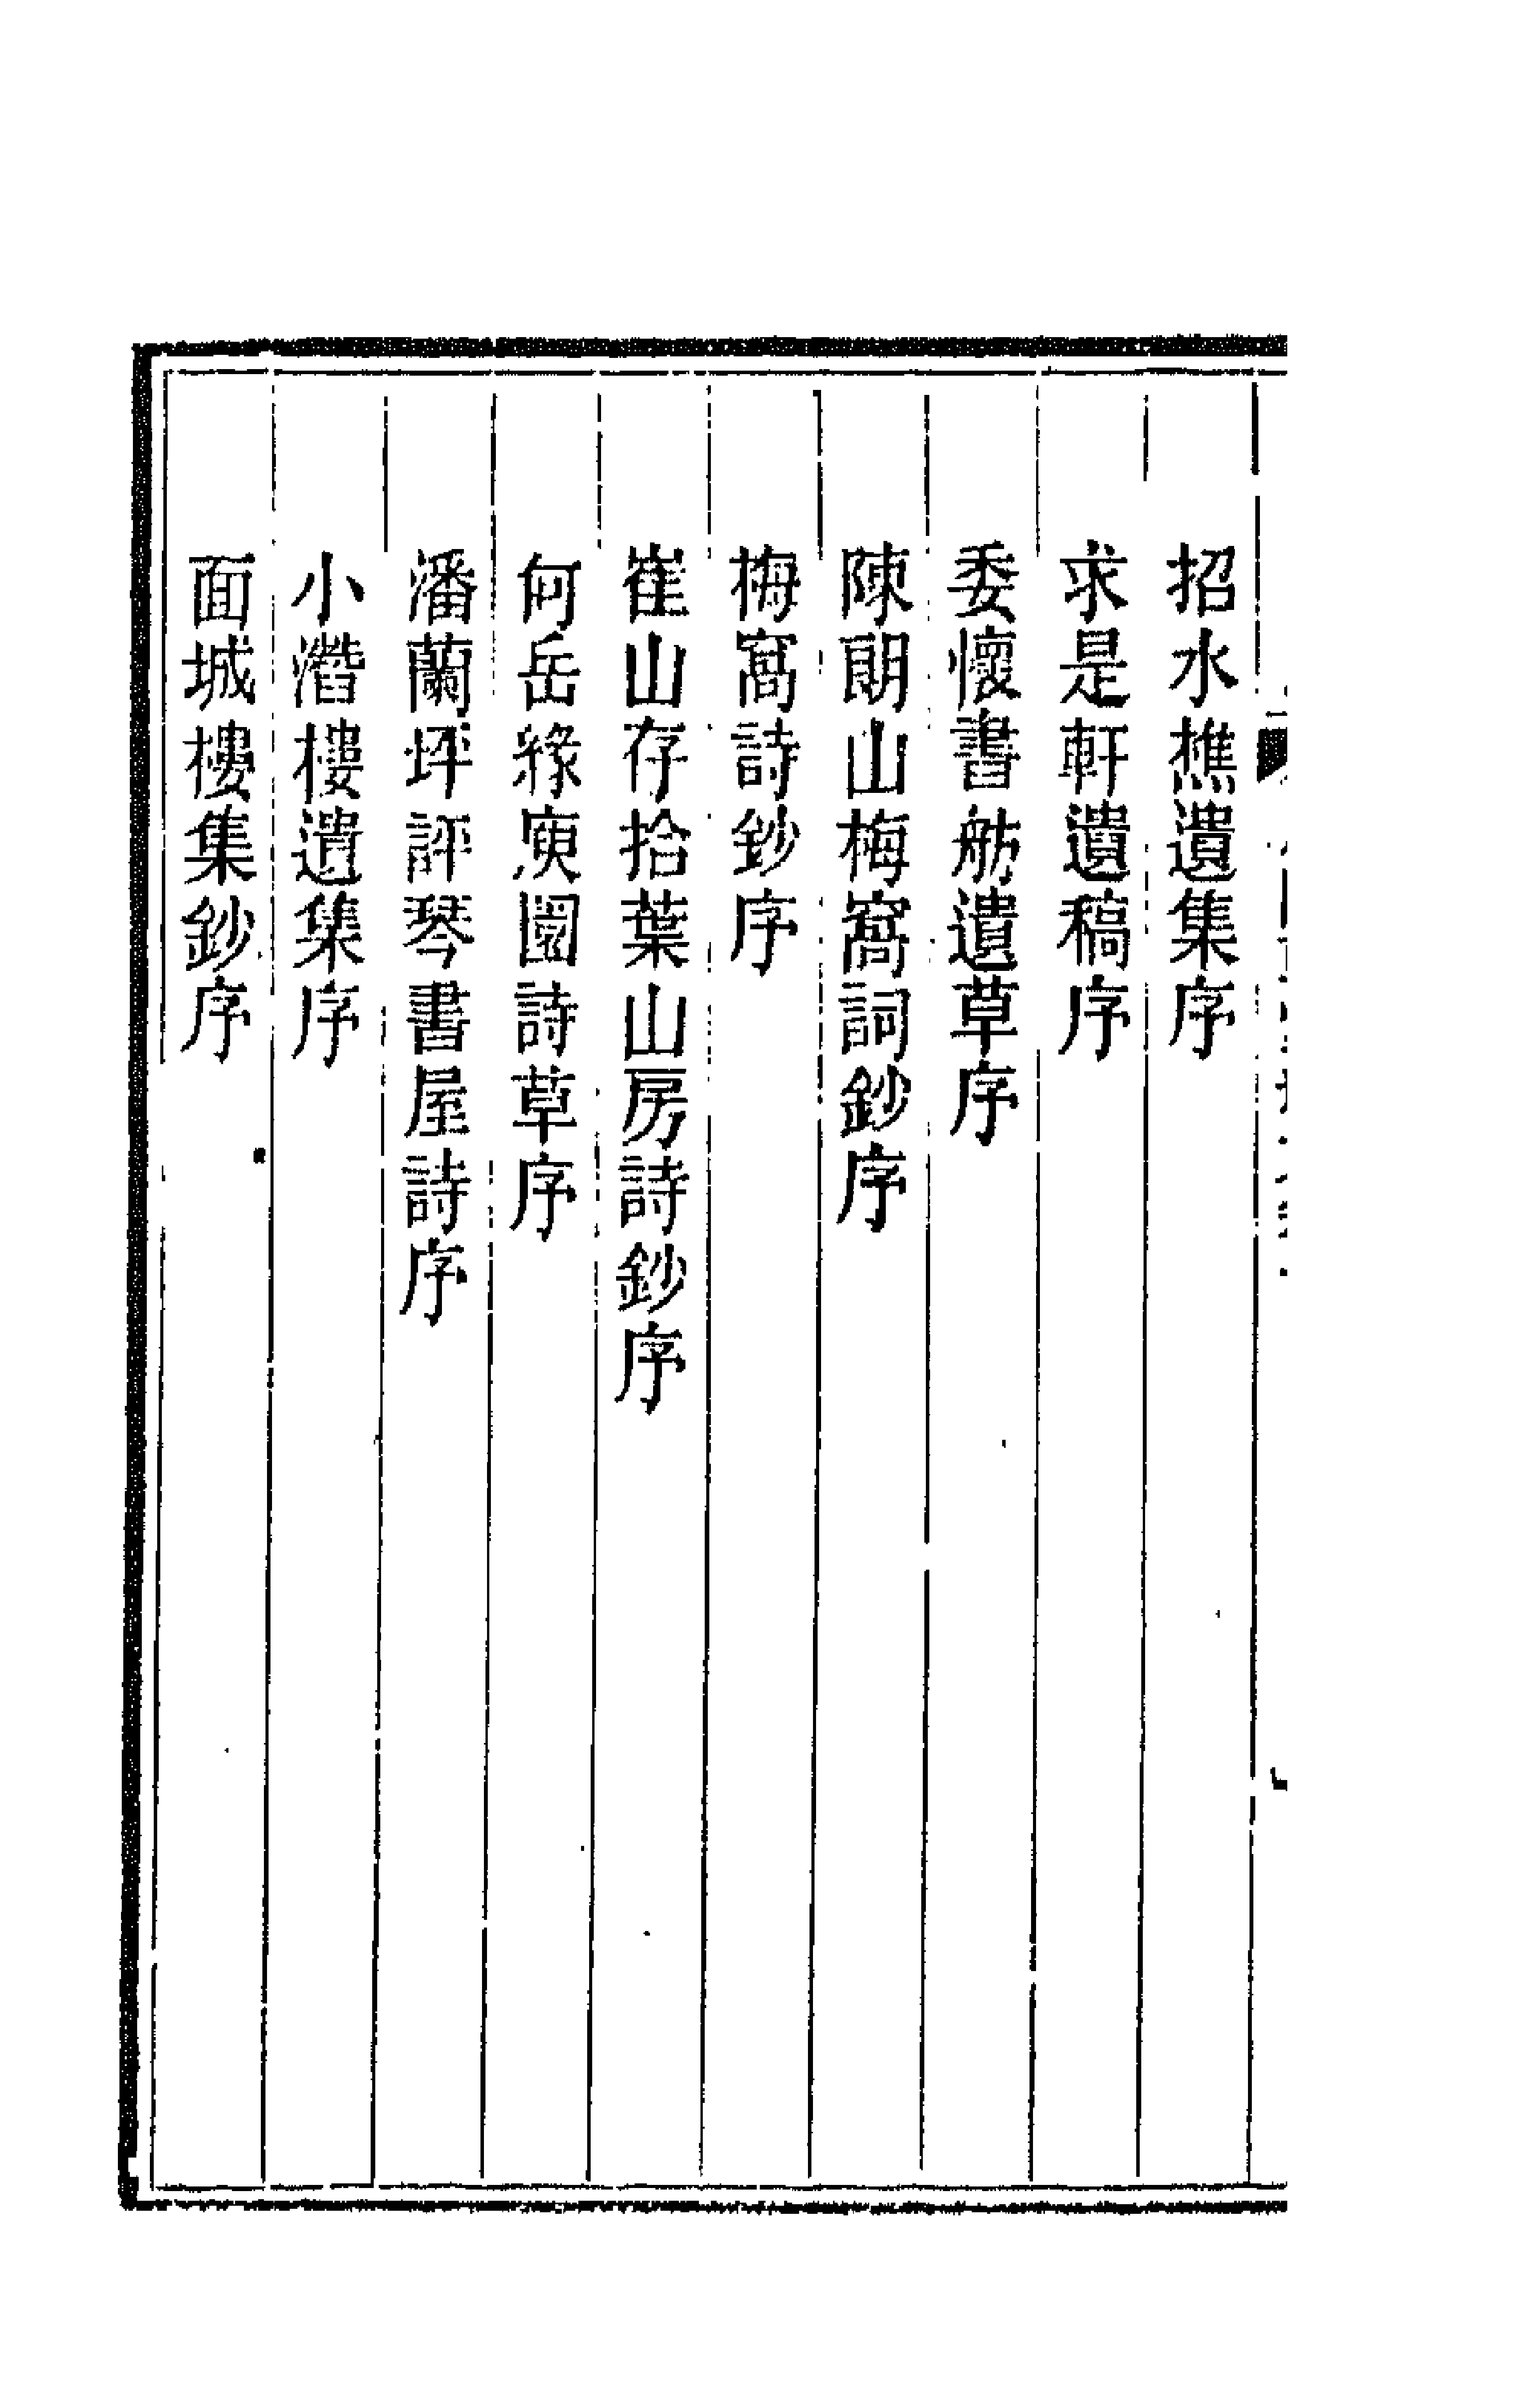 招水樵遺集序
求是軒遺稿序
委懷書舫遺草序
陳朗山梅窩詞鈔序
梅窩詩鈔序
崔山存拾葉山房詩鈔序
何岳㟽庾園詩草序
潘蘭坪評琴書屋詩序
小潛樓遺集序
面城樓集鈔序